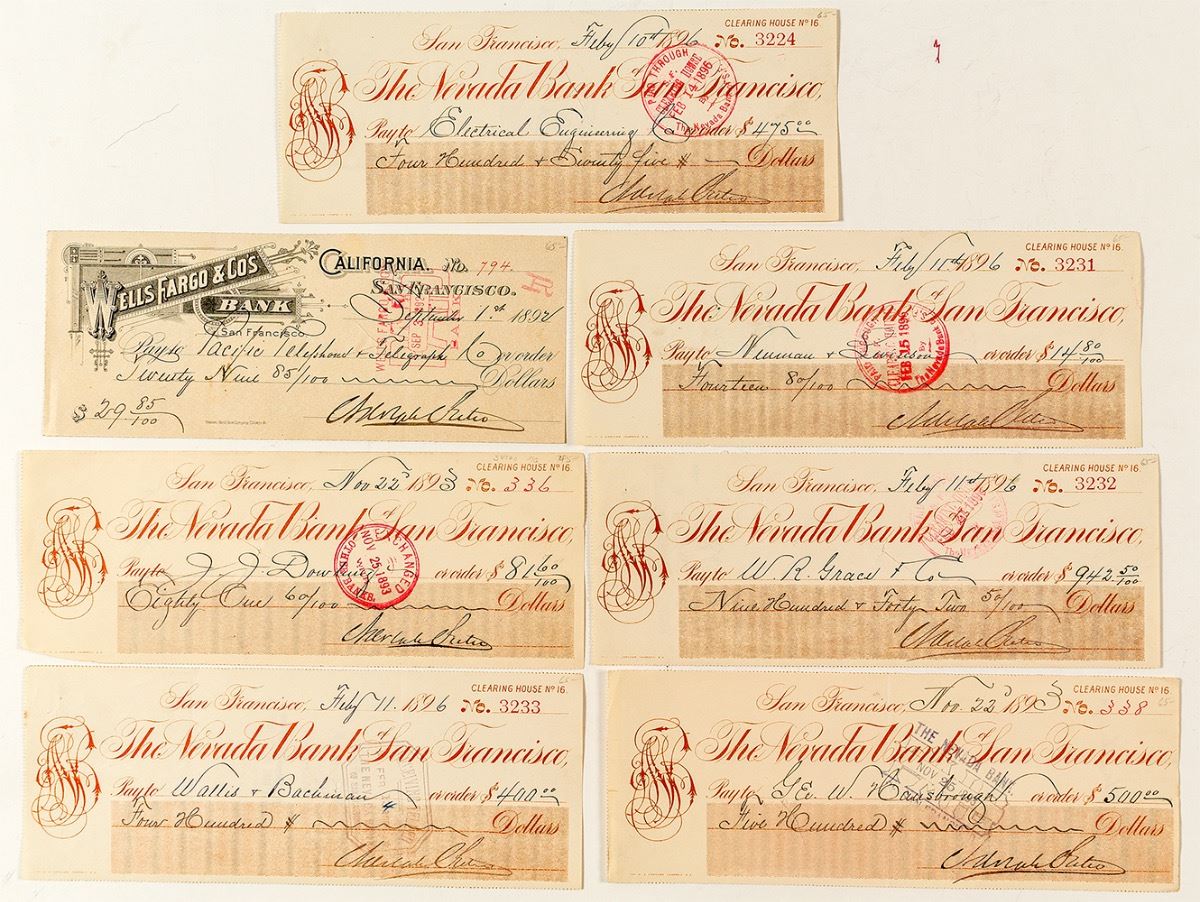 65-
CLEARING HOUSE Nº 16
San Francisco, Feby 10th 1896 No. 3224
The Nevada Bank of San Francisco,
PAID THROUGH
S.F.
CLEARING HOUSE
FEB 14 1896
BY
The Nevada Bank
Pay to Electrical Engineering Co or order $ 475 00
Four Hundred & Seventy five $ Dollars
Adolph Sutro
65-
WELLS FARGO & CO'S
BANK
San Francisco
CALIFORNIA. No. 794.
SAN FRANCISCO.
September 1st 1892
WELLS FARGO
SEP 3
BANK
Pay to Pacific Telephone & Telegraph Co or order
Twenty Nine 85/100 Dollars
$ 29 85/100
Adolph Sutro
CLEARING HOUSE Nº 16.
San Francisco, Feby 11th 1896 No. 3231
The Nevada Bank of San Francisco,
PAID THROUGH
FEB 15 1896
By
The Nevada Bank
Pay to Neuman & Levinson or order $ 14 80/100
Fourteen 80/100 Dollars
Adolph Sutro
45-
CLEARING HOUSE Nº 16.
San Francisco, Nov. 22d 1893 No. 336
The Nevada Bank of San Francisco,
EXCHANGED
NOV 25 1893
OTHER BANKS.
Pay to J. J. Downey or order $ 81 60/100
Eighty One 60/100 Dollars
Adolph Sutro
65-
CLEARING HOUSE Nº 16.
San Francisco, Feby 11th 1896 No. 3232
The Nevada Bank of San Francisco,
Pay to W. R. Grace & Co or order $ 942 50/100
Nine Hundred & Forty Two 50/100 Dollars
Adolph Sutro
65-
CLEARING HOUSE Nº 16.
San Francisco, Feby 11. 1896 No. 3233
The Nevada Bank of San Francisco,
Pay to Wallis & Bachman or order $ 400 00
Four Hundred $ Dollars
Adolph Sutro
CLEARING HOUSE Nº 16.
San Francisco, Nov. 22d 1893 No. 338
65-
The Nevada Bank of San Francisco,
THE NEVADA BANK
NOV 25
Pay to Geo. W. Hansbrough or order $ 500 00
Five Hundred $ Dollars
Adolph Sutro